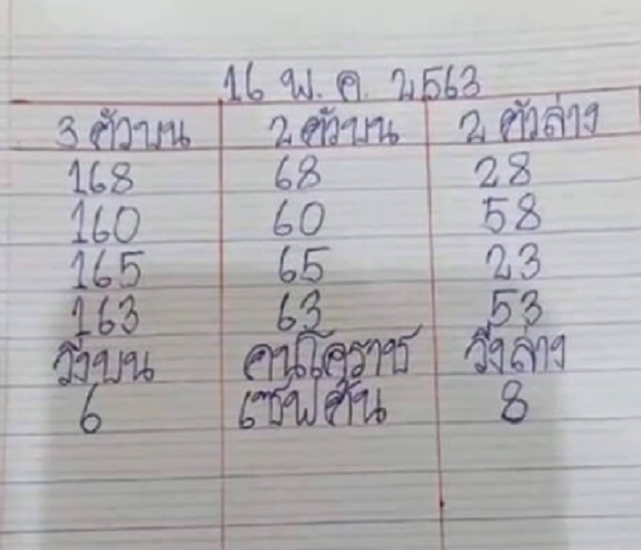 16 พ.ค. 2563
3 ตัวบน 2 ตัวบน 2 ตัวล่าง
168 68 28
160 60 58
165 65 23
163 63 53
วิ่งบน คนโคราช วิ่งล่าง
6 เซฟตัน 8